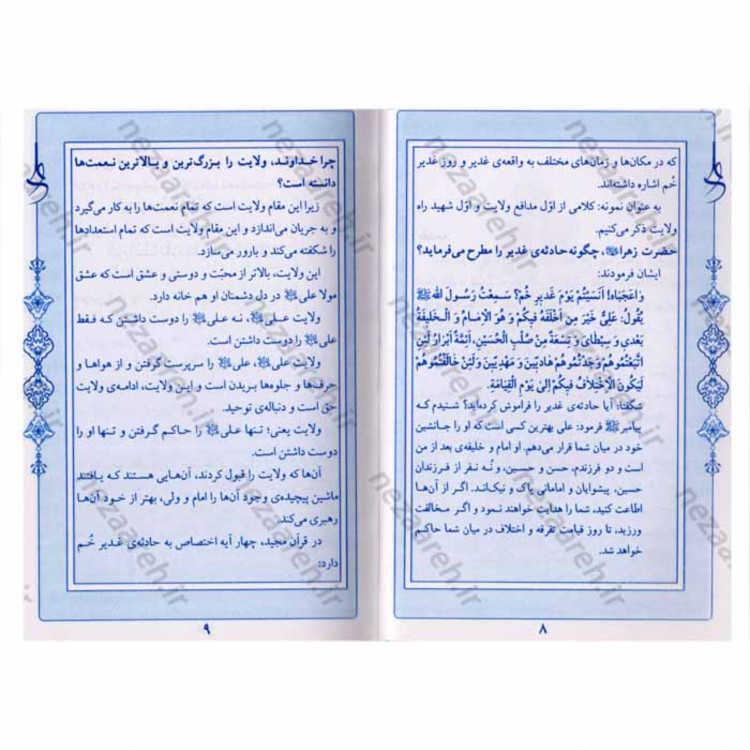 که در مکان‌ها و زمان‌های مختلف به واقعه‌ی غدیر و روز غدیر
خُم اشاره داشته‌اند.
به عنوان نمونه: کلامی از اوّل مدافع ولایت و اوّل شهید راه
ولایت ذکر می‌کنیم.
حضرت زهرا، چگونه حادثه‌ی غدیر را مطرح می‌فرماید؟
ایشان فرمودند:
وَاعَجَباه! أَنَسیتُمْ یَوْمَ غَدیرِ خُمٍّ؟ سَمِعْتُ رَسُولَ اللهِ ﷺ
یَقُولُ: عَلِیٌّ خَیْرُ مَنْ أُخَلِّفُهُ فیکُمْ وَ هُوَ الْإِمامُ وَ الْخَلیفَةُ
بَعْدی وَ سِبْطایَ وَ تِسْعَةٌ مِنْ صُلْبِ الْحُسَیْنِ، أَئِمَّةٌ أَبْرارٌ لَئِنِ
اتَّبَعْتُمُوهُمْ وَجَدْتُمُوهُمْ هادِیینَ وَ مَهْدِیّینَ وَ لَئِنْ خالَفْتُمُوهُمْ
لَیَکُونُ الْاِخْتِلافُ فیکُمْ إِلی یَوْمِ الْقِیامَةِ.
شگفتا، آیا حادثه‌ی غدیر را فراموش کرده‌اید؟ شنیدم که
پیامبر ﷺ فرمود: علی بهترین کسی است که او را جانشین
خود در میان شما قرار می‌دهم. او امام و خلیفه‌ی بعد از من
است و دو فرزندم، حسن و حسین، و نُه نفر از فرزندان
حسین، پیشوایان و امامانی پاک و نیک‌اند. اگر از آن‌ها
اطاعت کنید، شما را هدایت خواهند نمود و اگر مخالفت
ورزید، تا روز قیامت تفرقه و اختلاف در میان شما حاکم
خواهد شد.
۸
چرا خداوند، ولایت را بزرگ‌ترین و بالاترین نعمت‌ها
دانسته است؟
زیرا این مقام ولایت است که تمام نعمت‌ها را به کار می‌گیرد
و به جریان می‌اندازد و این مقام ولایت است که تمام استعدادها
را شکفته می‌کند و بارور می‌سازد.
این ولایت، بالاتر از محبّت و دوستی و عشق است که عشق
مولا علی در دل دشمنان او هم خانه دارد.
ولایت علی، نه علی را دوست داشتن که فقط
علی را دوست داشتن است.
ولایت علی، علی را سرپرست گرفتن و از هواها و
حرف‌ها و جلوه‌ها بریدن است و این ولایت، ادامه‌ی ولایت
حق است و دنباله‌ی توحید.
ولایت یعنی؛ تنها علی را حاکم گرفتن و تنها او را
دوست داشتن است.
آن‌ها که ولایت را قبول کردند، آن‌هایی هستند که یافتند
ماشین پیچیده‌ی وجود آن‌ها را امام و ولی، بهتر از خود آن‌ها
رهبری می‌کند.
در قرآن مجید، چهار آیه اختصاص به حادثه‌ی غدیر خُم
دارد:
۹
nezaareh.ir
nezaareh.ir
nezaareh.ir
nezaareh.ir
nezaareh.ir
nezaareh.ir